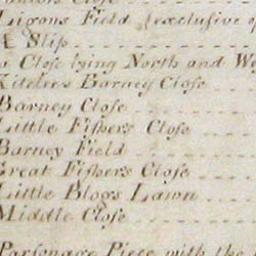 Ligons Field (exclusive of
A Slip
a Close lying North and We
Kitelees Barney Close
Barney Close
Little Fishers Close
Barney Field
Great Fishers Close
Little Blogs Lawn
Middle Close
Parsonage Piece with the